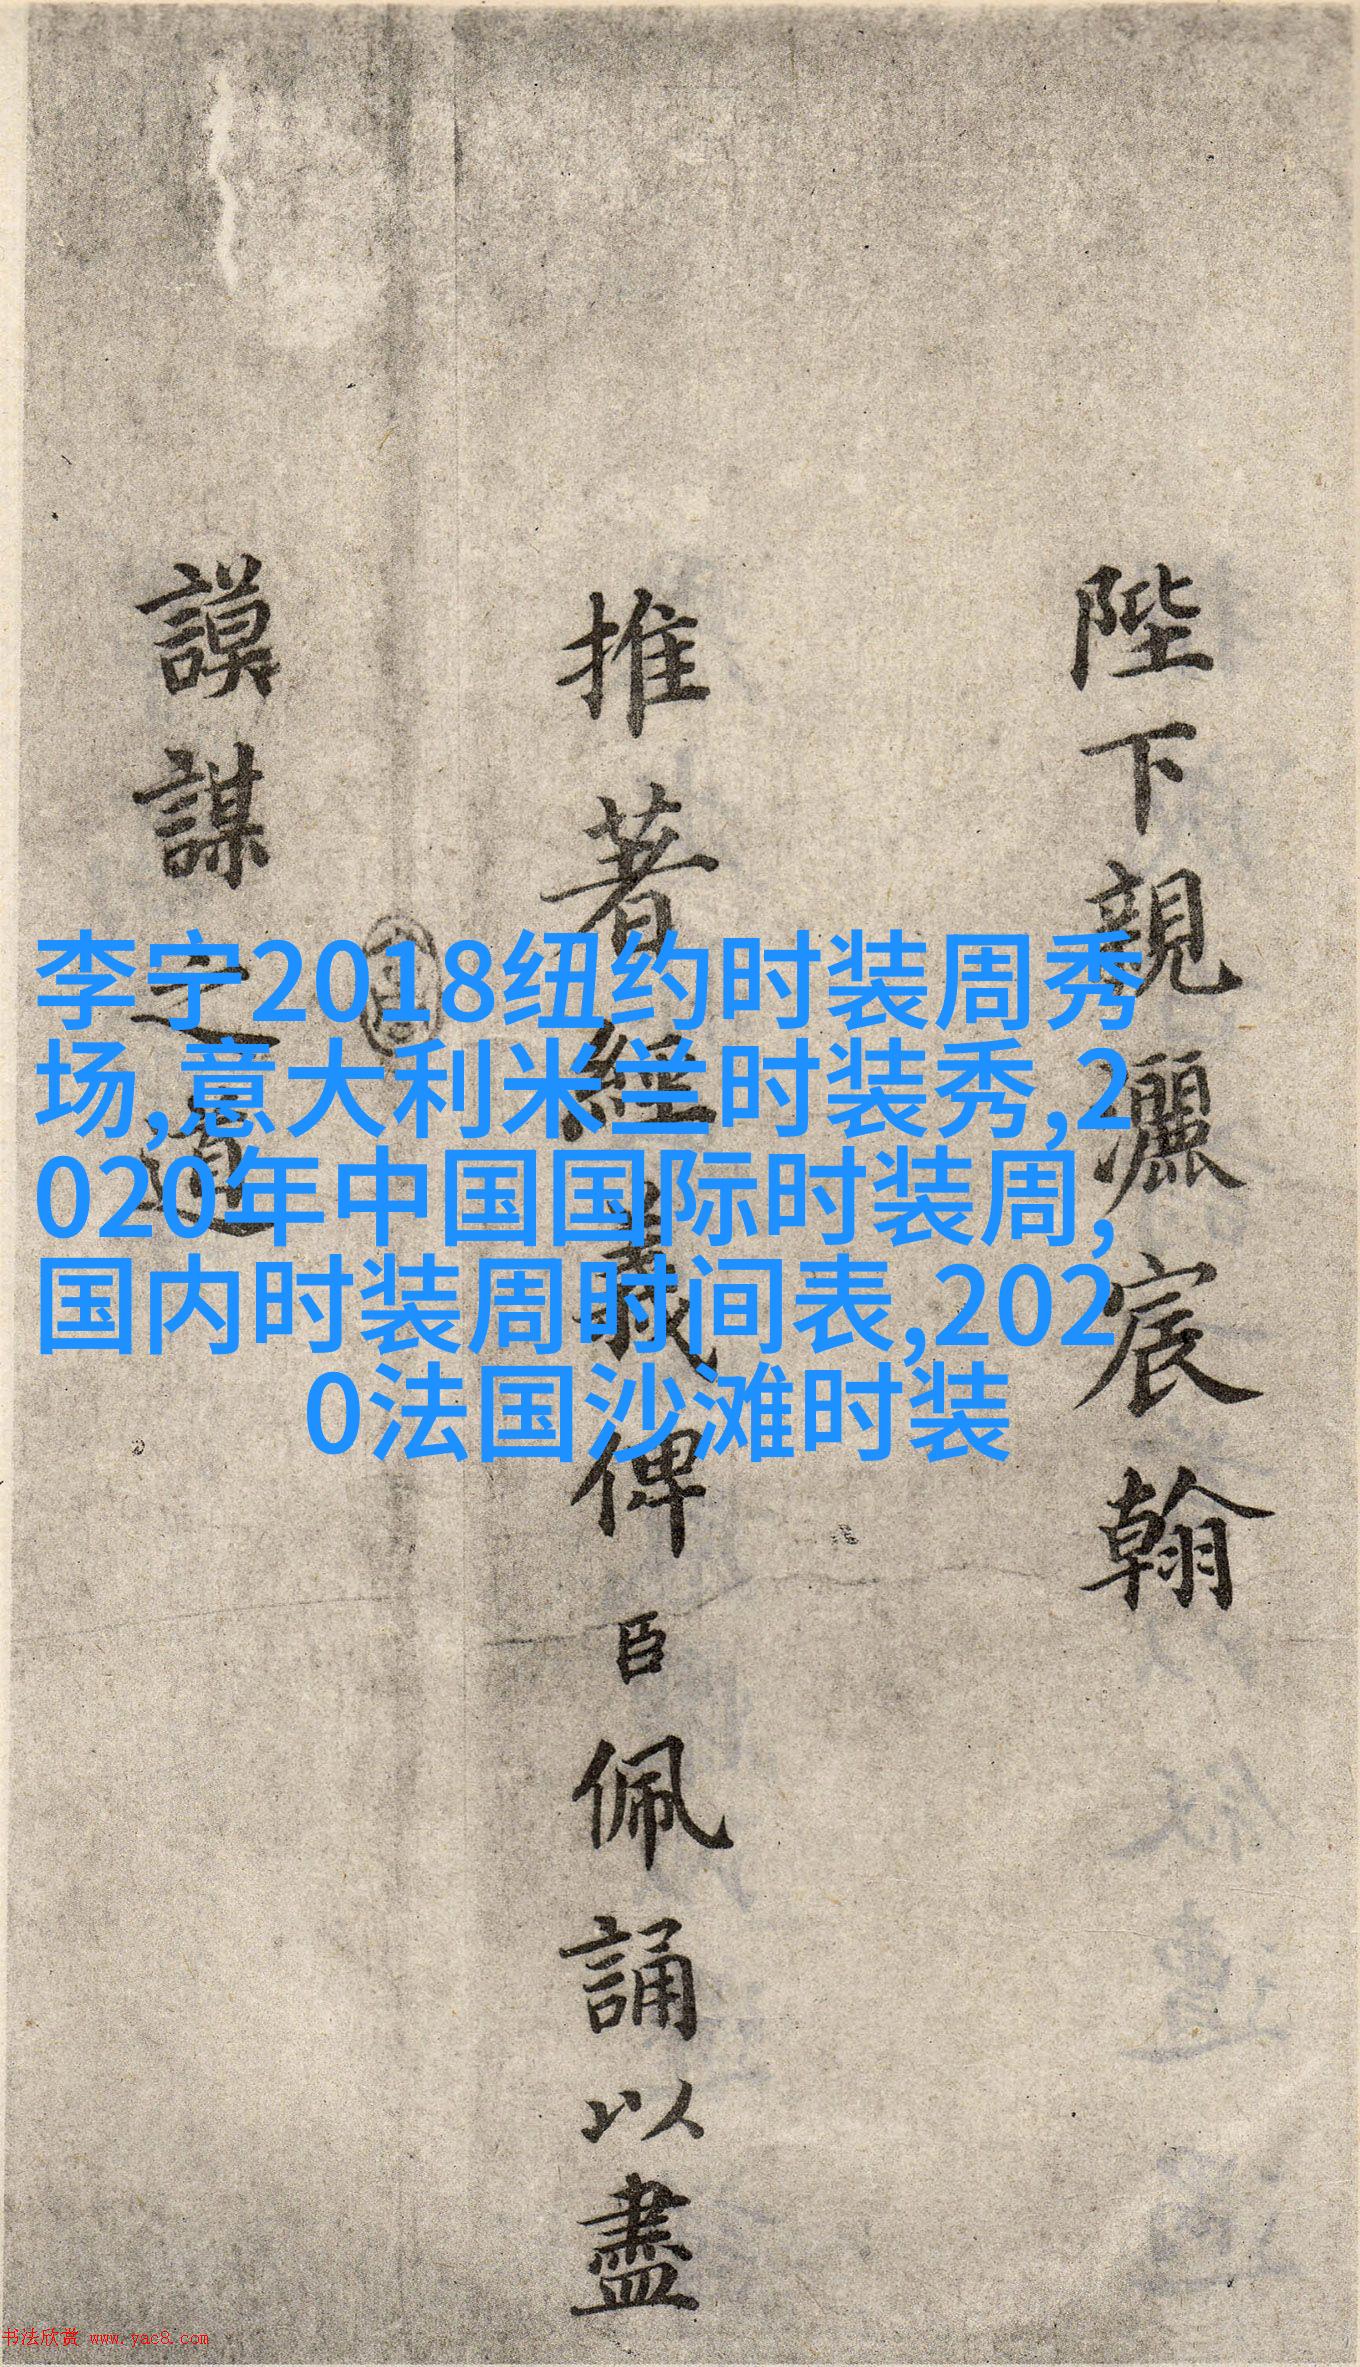 陛下親灑宸翰
推著經義俾臣佩誦以盡
謨謀之道
李宁2018纽约时装周秀
场,意大利米兰时装秀,2
020年中国国际时装周,
国内时装周时间表,202
0法国沙滩时装
书法欣赏 www.yac8.com